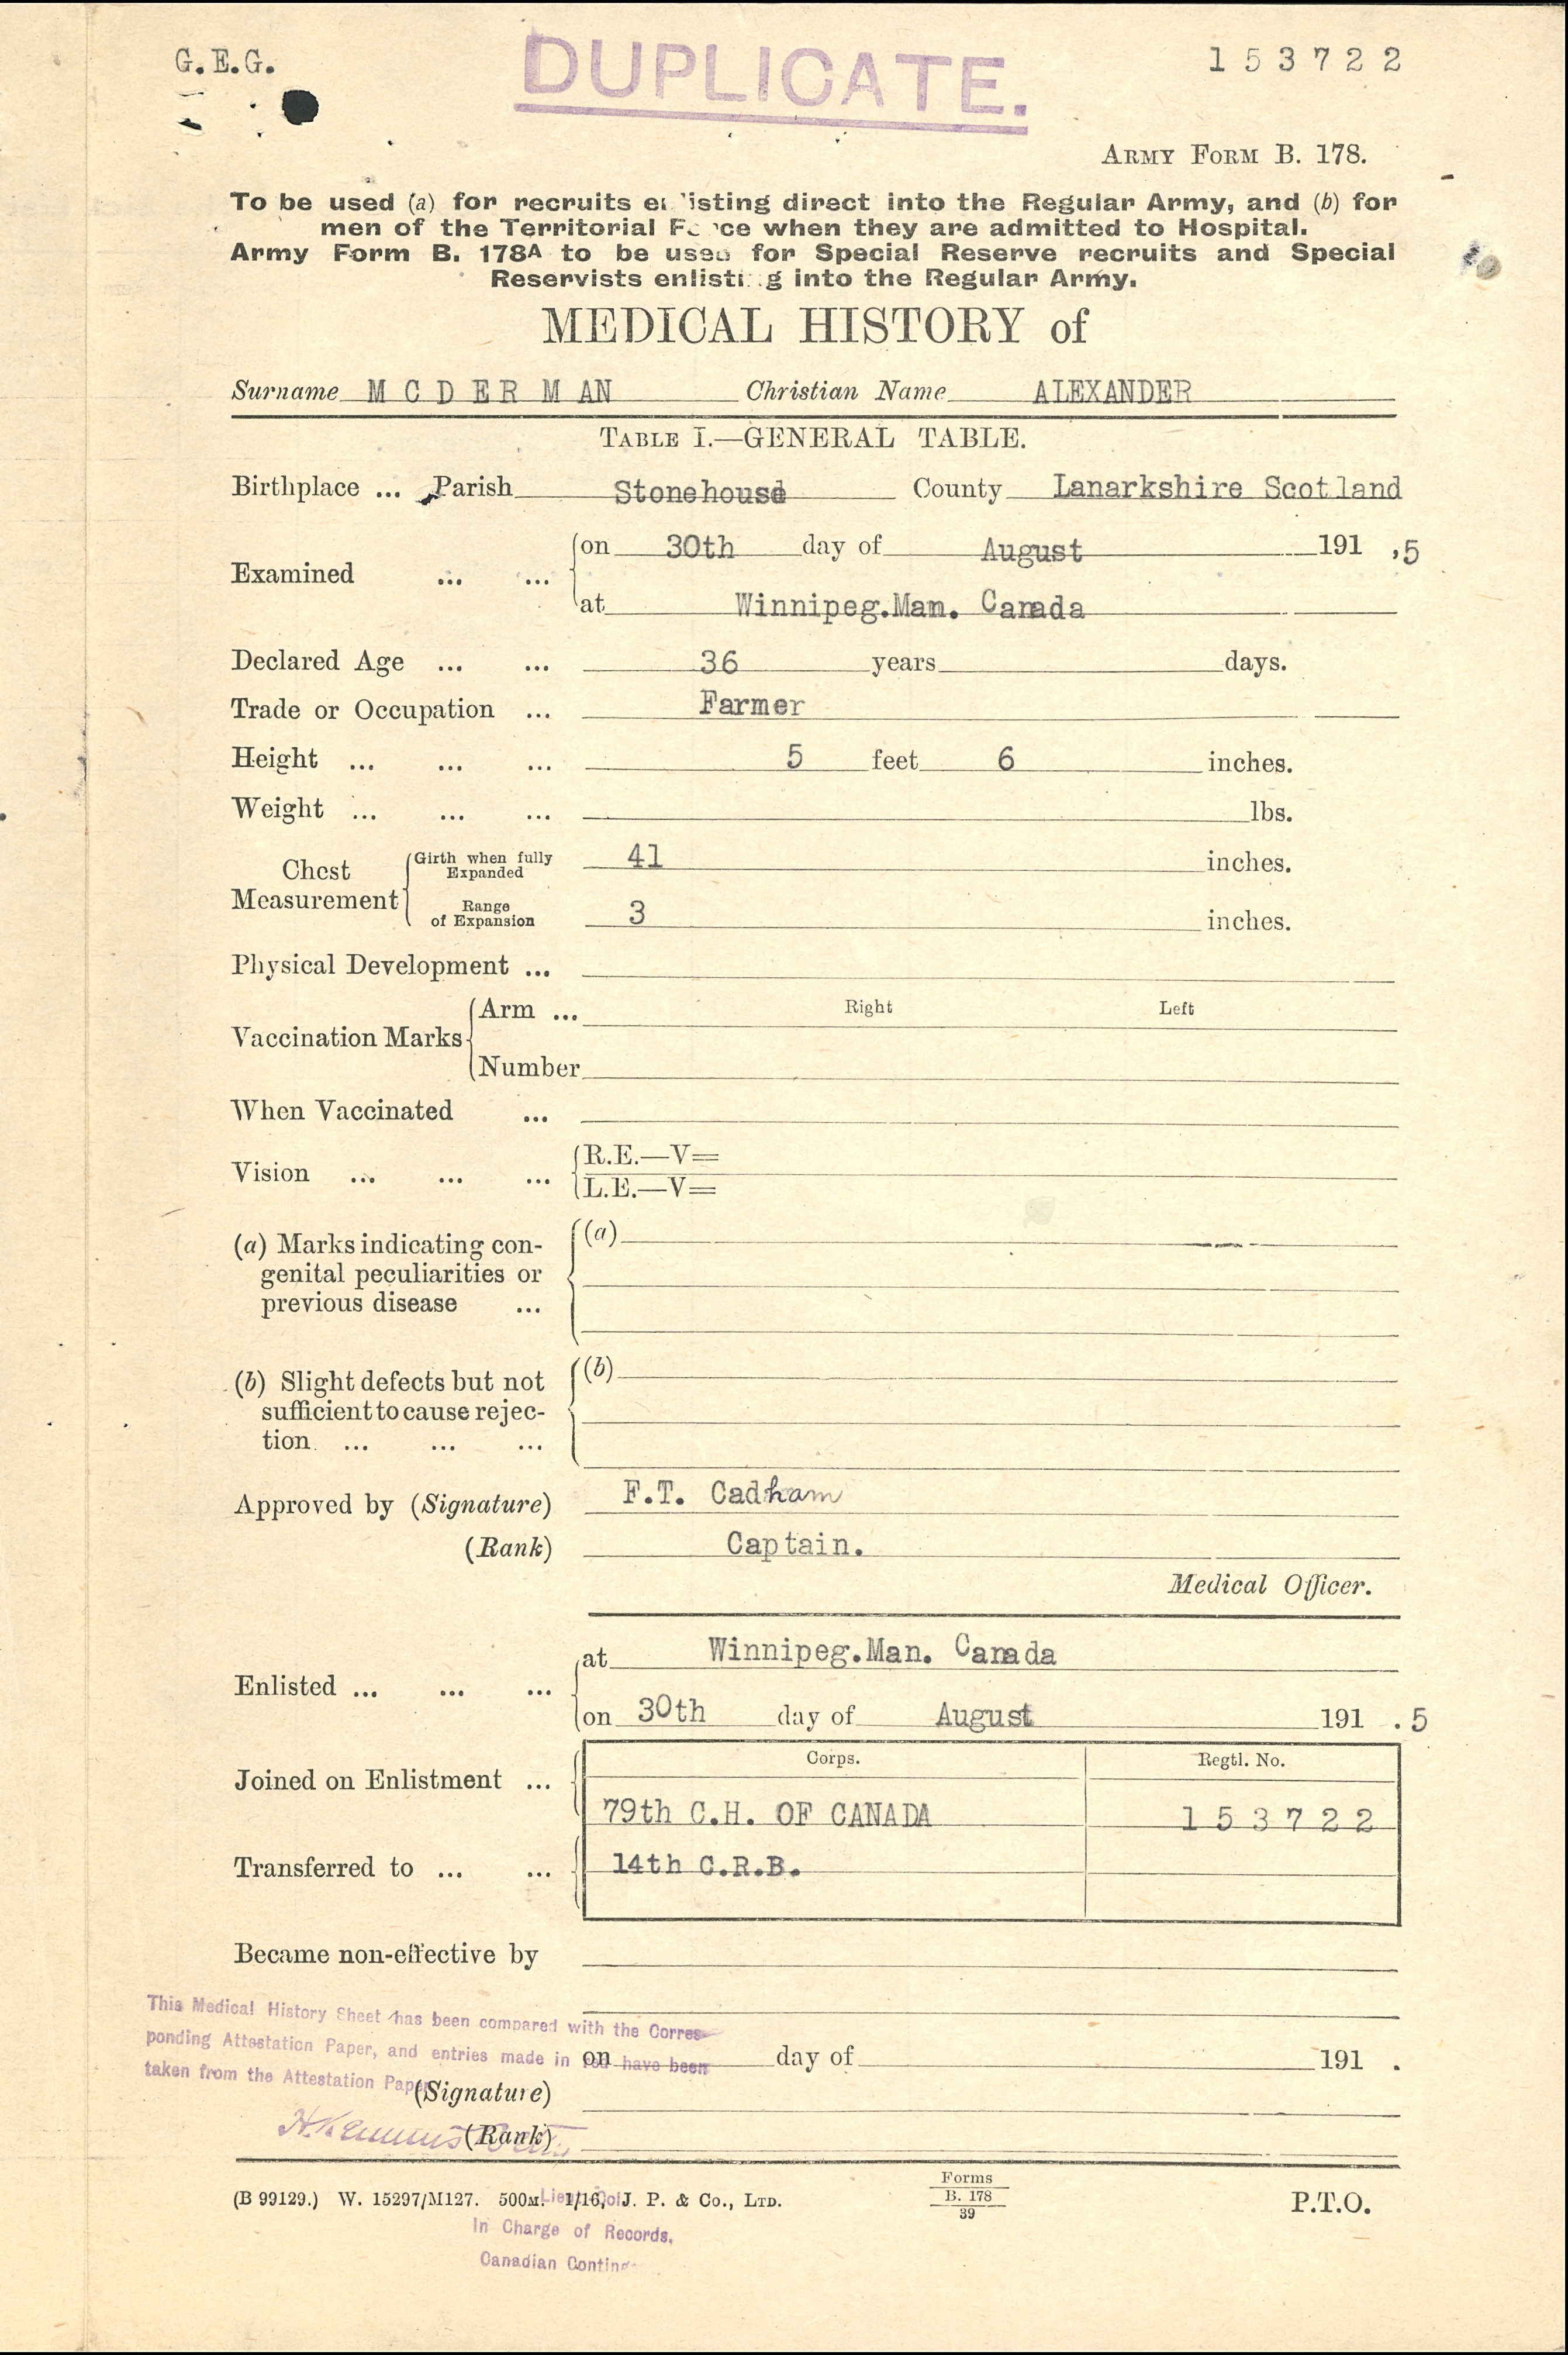 G.E.G.
DUPLICATE.
1 5 3 7 2 2
ARMY FORM B. 178.
To be used (a) for recruits enlisting direct into the Regular Army, and (b) for
men of the Territorial Force when they are admitted to Hospital.
Army Form B. 178A to be used for Special Reserve recruits and Special
Reservists enlisting into the Regular Army.
MEDICAL HISTORY of
Surname M C D E R M AN Christian Name ALEXANDER
TABLE I.—GENERAL TABLE.
Birthplace ... Parish Stonehouse County Lanarkshire Scotland
Examined ... ... on 30th day of August 191 ,5
at Winnipeg.Man. Canada
Declared Age ... ... 36 years days.
Trade or Occupation ... Farmer
Height ... ... ... 5 feet 6 inches.
Weight ... ... ... lbs.
Chest Measurement
Girth when fully Expanded 41 inches.
Range of Expansion 3 inches.
Physical Development ...
Vaccination Marks
Arm ... Right Left
Number
When Vaccinated ...
Vision ... ... ...
R.E.—V=
L.E.—V=
(a) Marks indicating con- (a)
genital peculiarities or
previous disease ...
(b) Slight defects but not (b)
sufficient to cause rejec-
tion. ... ... ...
Approved by (Signature) F.T. Cadham
(Rank) Captain.
Medical Officer.
Enlisted ... ... ... at Winnipeg.Man. Canada
on 30th day of August 191 . 5
Corps. Regtl. No.
Joined on Enlistment ... 79th C.H. OF CANADA 1 5 3 7 2 2
Transferred to ... ... 14th C.R.B.
Became non-effective by
This Medical History Sheet has been compared with the Corres-
ponding Attestation Paper, and entries made in red have been
taken from the Attestation Paper
on day of 191 .
(Signature)
(Rank)
(B 99129.) W. 15297/M127. 500M. 1/16. J. P. & Co., LTD.
Forms
B. 178
39
P.T.O.
Lieut Col.
In Charge of Records,
Canadian